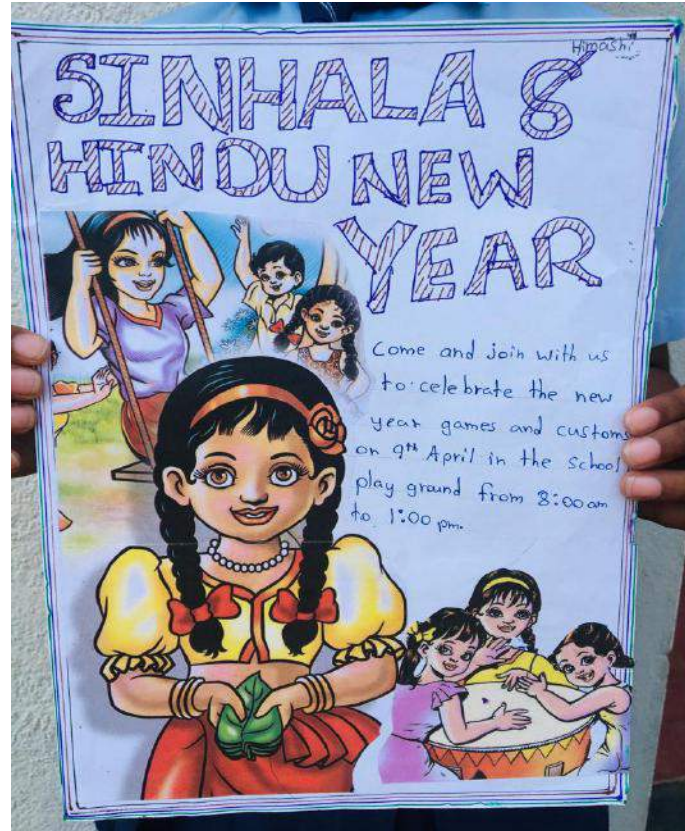 Himashi
SINHALA &
HINDU NEW
YEAR
Come and join with us
to celebrate the new
year games and customs
on 9th April in the school
play ground from 8:00 am
to 1:00 pm.